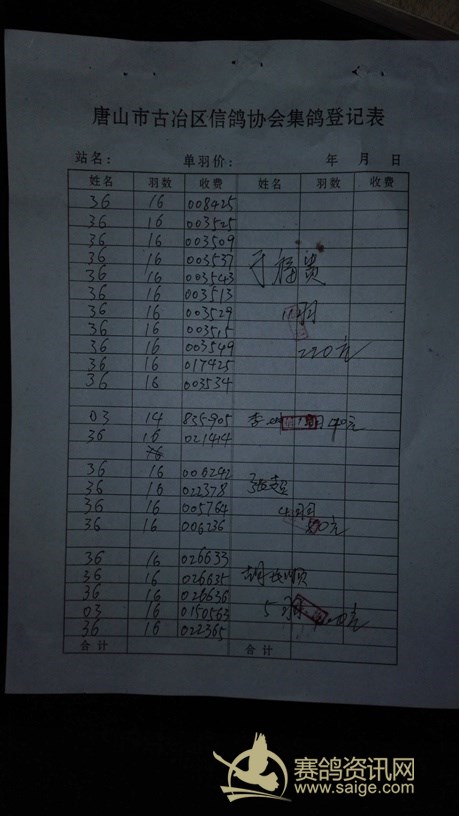 唐山市古冶区信鸽协会集鸽登记表
站名： 单羽价： 年 月 日
姓名 羽数 收费 姓名 羽数 收费
36 16 008425
36 16 003525
36 16 003509
36 16 003537 于福贵
36 16 003543
36 16 003513
36 16 003529 11羽
36 16 003515
36 16 003549 220元
36 16 017425
36 16 003534
03 14 855905 李 40元
36 16 021414
16
36 16 006242
36 16 022378 张超
36 16 005764 4羽
36 16 006236 80元
36 16 026633
36 16 026635 胡 顺
36 16 026636
03 16 0150563 5羽 元
36 16 022365
合计 合计
赛鸽资讯网
www.saige.com